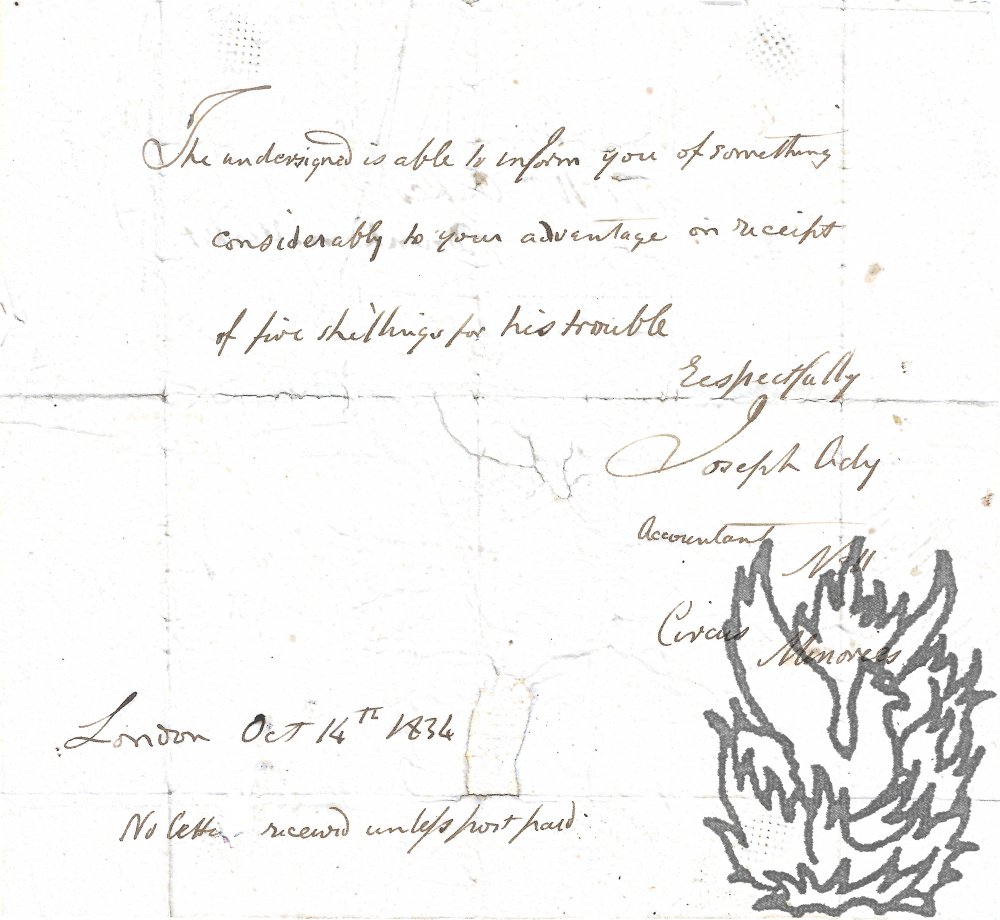 The undersigned is able to inform you of something
considerably to your advantage on receipt
of five shillings for his trouble
Respectfully
Joseph Ady
Accountant
No 11
Circus
Minories
London Oct 14th 1834
No letter received unless post paid